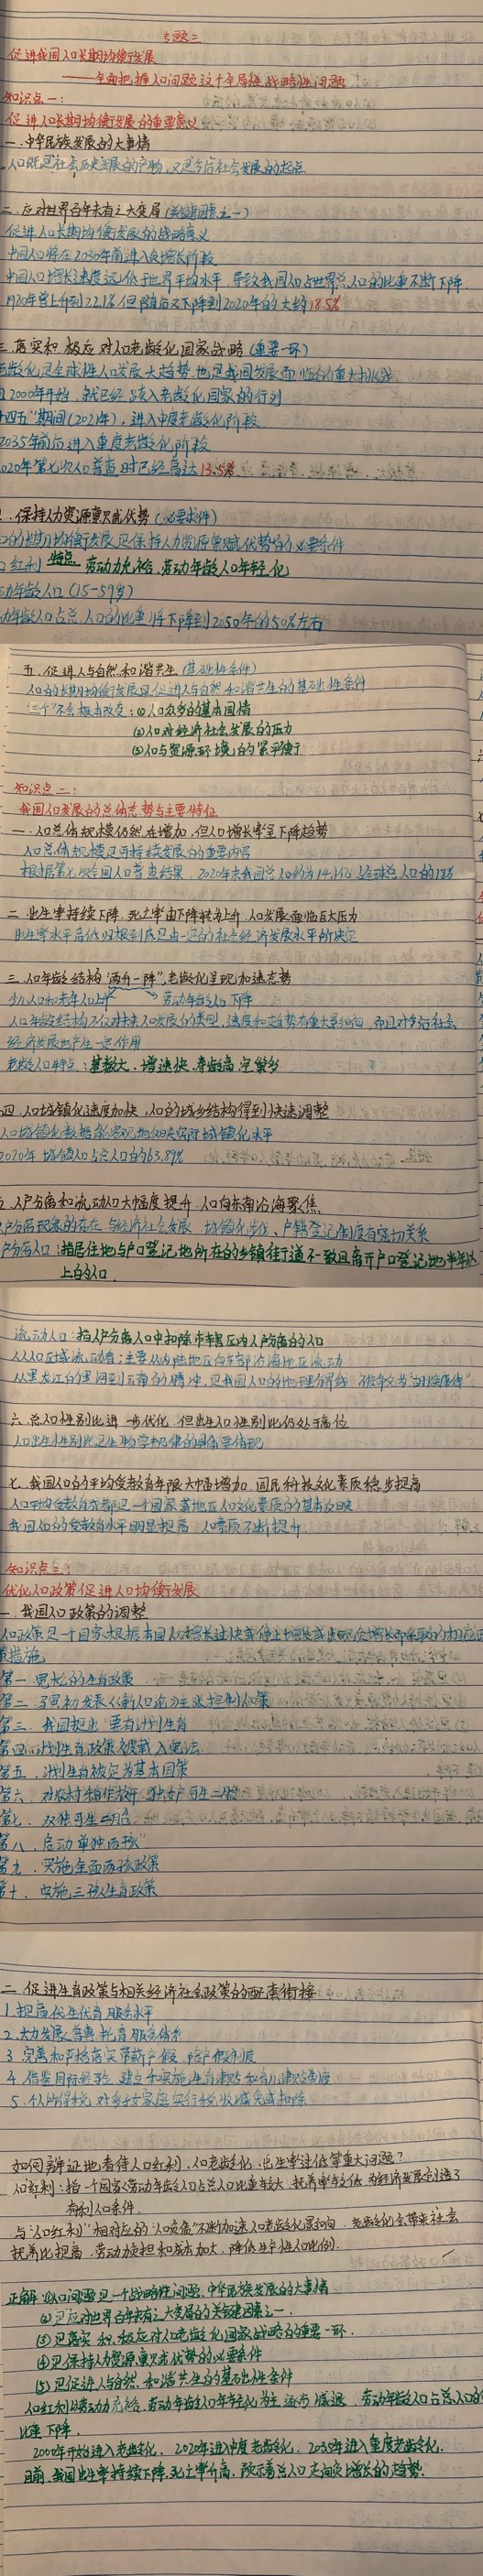 专题二
促进我国人口长期均衡发展
——全面把握人口问题这个全局性、战略性问题
知识点一:
促进人口长期均衡发展的重要意义
一、中华民族发展的大事情
人口既是社会历史发展的产物,又是今后社会发展的起点
二、应对世界百年未有之大变局(关键因素之一)
促进人口长期均衡发展的战略意义
中国人口将在2030年前进入负增长阶段
中国人口增长速度远低于世界平均水平,导致我国人口占世界总人口的比重不断下降
1970年曾上升到22.1% 但随后又下降到2020年的大约18.5%
三、落实积极应对人口老龄化国家战略(重要一环)
老龄化是全球性人口发展大趋势也是我国发展面临的重大挑战
自2000年开始,就已经迈入老龄化国家的行列
十四五"期间(2021年),进入中度老龄化阶段
2035年前后进入重度老龄化阶段
2020年第七次人口普查时已经高达13.5%
、保持人力资源禀赋优势(必要条件)
口的长期均衡发展是保持人力资源禀赋优势的必要条件
口红利 特点:劳动力充裕、劳动年龄人口年轻化
动年龄人口(15-59岁)
动年龄人口占总人口的比重将下降到2050年的50%左右
五、促进人与自然和谐共生(基础性条件)
人口的长期均衡发展是促进人与自然和谐共生的基础性条件
"三个"不会根本改变:(1)人口众多的基本国情
(2)人口对经济社会发展的压力
(3)人口与资源环境的紧平衡
知识点二:
我国人口发展的总体态势与主要特征
一、人口总体规模仍然在增加,但人口增长率呈下降趋势
人口总体规模是可持续发展的重要内容
根据第七次全国人口普查结果,2020年末我国总人口约为14.1亿 占全球总人口的18%
二、出生率持续下降,死亡率由下降转为上升,人口发展面临巨大压力
出生率水平高低归根到底是由一定的社会经济发展水平所决定
三、人口年龄结构"两升一降",老龄化呈现加速态势
少儿人口和老年人口上升 劳动年龄人口下降
人口年龄结构不仅对未来人口发展的类型、速度和趋势有重大影响,而且对今后社会
经济发展也产生一定作用
老龄人口特点:基数大、增速快、寿龄高、空巢多
四、人口城镇化速度加快,人口的城乡结构得到快速调整
人口城镇化数据能客观地体现实际城镇化水平
2020年 城镇人口占总人口的63.89%
五、人户分离和流动人口大幅度提升,人口向东南沿海聚焦
人户分离现象的存在,与经济社会发展、城镇化步伐、户籍登记制度有密切关系
户分离人口:指居住地与户口登记地所在的乡镇街道不一致且离开户口登记地半年以
上的人口
流动人口:指人户分离人口中扣除市辖区内人户分离的人口
从人口区域流动看:主要从内陆地区向东部沿海地区流动
从黑龙江的黑河到云南的腾冲,是我国人口的地理分界线,被称为"胡焕庸线"
六、总人口性别比进一步优化,但出生人口性别比仍处于高位
人口出生性别比是生物学规律的具体体现
七、我国人口的平均受教育年限大幅增加,国民科技文化素质稳步提高
人口平均受教育年限是一个国家或地区人口文化素质的基本反映
我国人口的受教育水平明显提高,人口素质不断提升
知识点三:
优化人口政策促进人口均衡发展
一、我国人口政策的调整
人口政策是一个国家根据本国人口增长过快或停止增长或出现负增长所采取的相应政
策措施
第一、宽松的生育政策
第二、马寅初发表《新人口论》主张控制人口政策
第三、我国提出要有计划生育
第四、计划生育政策被载入宪法
第五、计划生育被定为基本国策
第六、对农村稍作放开,独女户可生二胎
第七、双独可生二胎
第八、启动"单独两孩"
第九、实施全面两孩政策
第十、实施三孩生育政策
二、促进生育政策与相关经济社会政策的配套衔接
1.提高优生优育服务水平
2.大力发展普惠托育服务体系
3.完善和严格落实带薪产假、陪产假制度
4.借鉴国际经验,建立和实施生育津贴和育儿津贴制度
5.个人所得税,对多子女家庭实行税收减免或扣除
如何辩证地看待人口红利、人口老龄化、出生率过低等重大问题?
人口红利:指一个国家劳动年龄人口占总人口比重较大,抚养率较低,为经济发展创造了
有利人口条件.
与"人口红利"相对应的"人口负债"不断加速人口老龄化影响,老龄化会带来社会
抚养比提高,劳动力负担和成本加大,降低生产性人口比例.
正解:(1)人口问题是一个战略性问题,中华民族发展的大事情
(2)是应对世界百年未有之大变局的关键因素之一.
(3)是落实积极应对人口老龄化国家战略的重要一环.
(4)是保持人力资源禀赋优势的必要条件
(5)是促进人与自然和谐共生的基础性条件
人口红利以劳动力充裕、劳动年龄人口年轻化为主 逐步减退,劳动年龄人口占总人口的
比重下降.
2000年开始进入老龄化,2020年进入中度老龄化,2035年进入重度老龄化.
目前,我国出生率持续下降,死亡率升高,预示着总人口走向负增长的趋势.